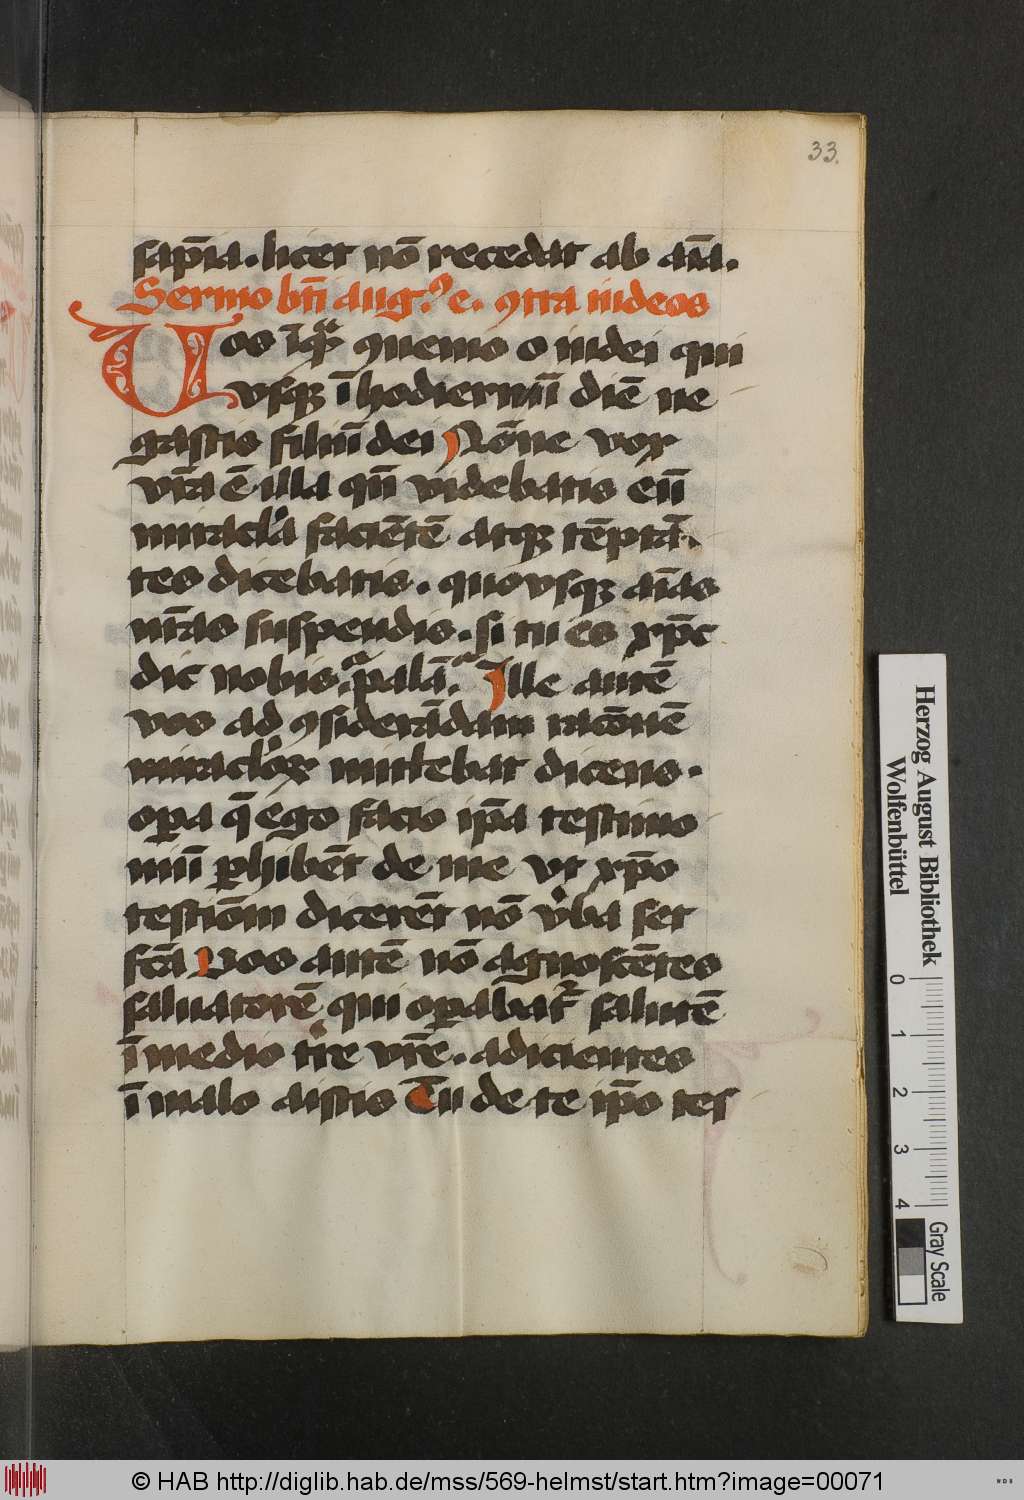 33.
sap̄ia. licet nō recedat ab aīa.
Sermo bt̄i aug.⁹ e. ꝯtra iudeos
Vos īqͣꝫ ꝯuenio o iudei qui
vsqꝫ ī hodiernū diē ne
gastis filiū dei Nōne vox
vr̄a ē illa qn̄ videbatis eū
miracl̓a faciētē atqꝫ tēptā.
tes dicebatis. quovsqꝫ aīas
nr̄as suspendis. si tu es xp̄c
dic nobis palā. Ille autē
vos ad ꝯsiderādam racōnē
miracl̓oꝝ mittebat dicens.
oꝑa q̄ ego facio ip̄a testimo
niū ꝑhibēt de me vt xp̄o
testiōm dicerēt nō v̓ba set
fc̄a Vos autē nō agnoscētes
saluatorē qui oꝑabat᷑ salutē
ī medio tr̄e vr̄e. adicientes
ī malo aistis Tu de te ip̄o tes
Herzog August Bibliothek
Wolfenbüttel
0 1 2 3 4
Gray Scale
© HAB http://diglib.hab.de/mss/569-helmst/start.htm?image=00071